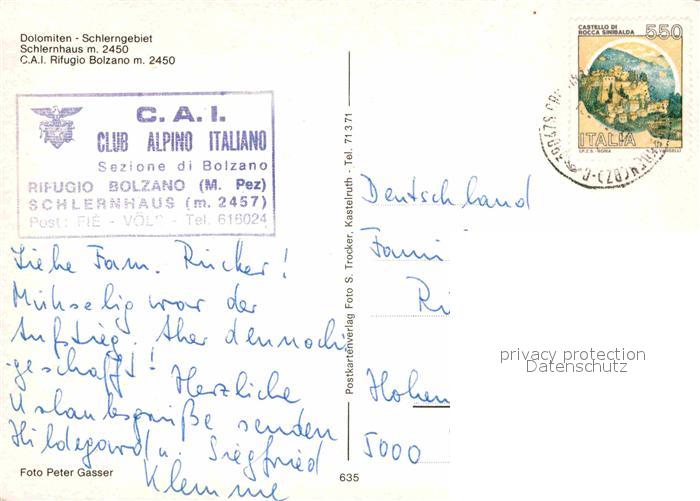 Dolomiten - Schlerngebiet
Schlernhaus m. 2450
C.A.I. Rifugio Bolzano m. 2450
C.A.I.
CLUB ALPINO ITALIANO
Sezione di Bolzano
RIFUGIO BOLZANO (M. Pez)
SCHLERNHAUS (m. 2457)
Post: FIÈ - VÖLS - Tel. 616024
Liebe Fam. Rücker!
Mühselig war der
Aufstieg. Aber dennoch
geschafft! Herzliche
Urlaubsgrüße senden
Hildegard u. Siegfried
Klemme
Foto Peter Gasser
Postkartenverlag Foto S. Trocker, Kastelruth - Tel. 71371
635
CASTELLO DI
ROCCA SINIBALDA
550
ITALIA
I.P.Z.S. - ROMA
Deutschland
Fami
Rü
Hohen
5000
privacy protection
Datenschutz